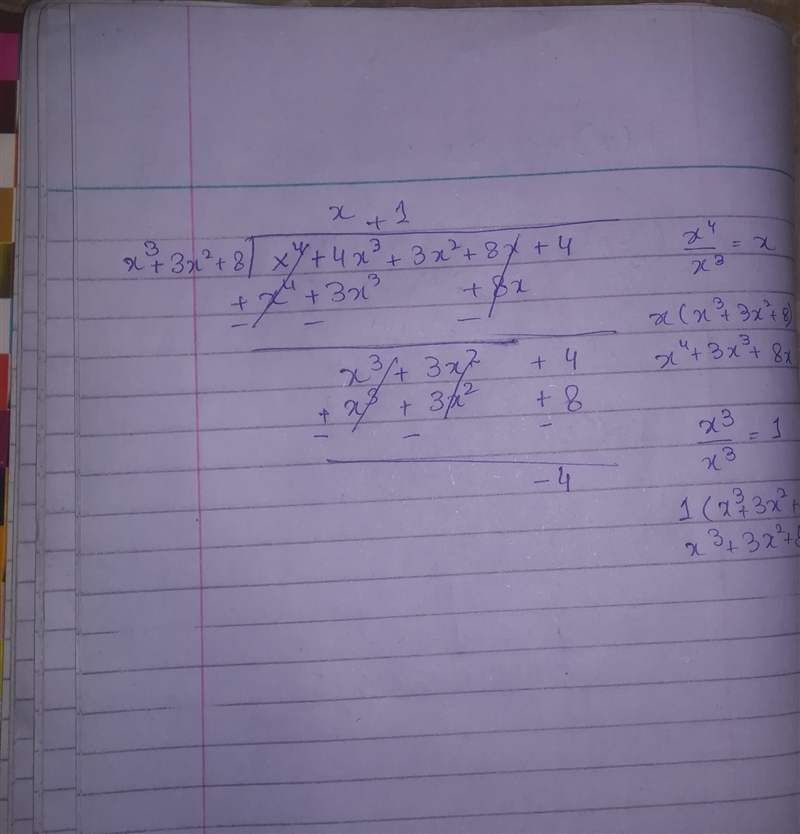 x + 1
x³+3x²+8) x⁴+4x³+3x²+8x+4
+x⁴+3x³ +8x
− − −
x³+3x² +4
+x³+3x² +8
− − −
−4
x⁴/x³ = x
x(x³+3x²+8)
x⁴+3x³+8x
x³/x³ = 1
1(x³+3x²+
x³+3x²+8